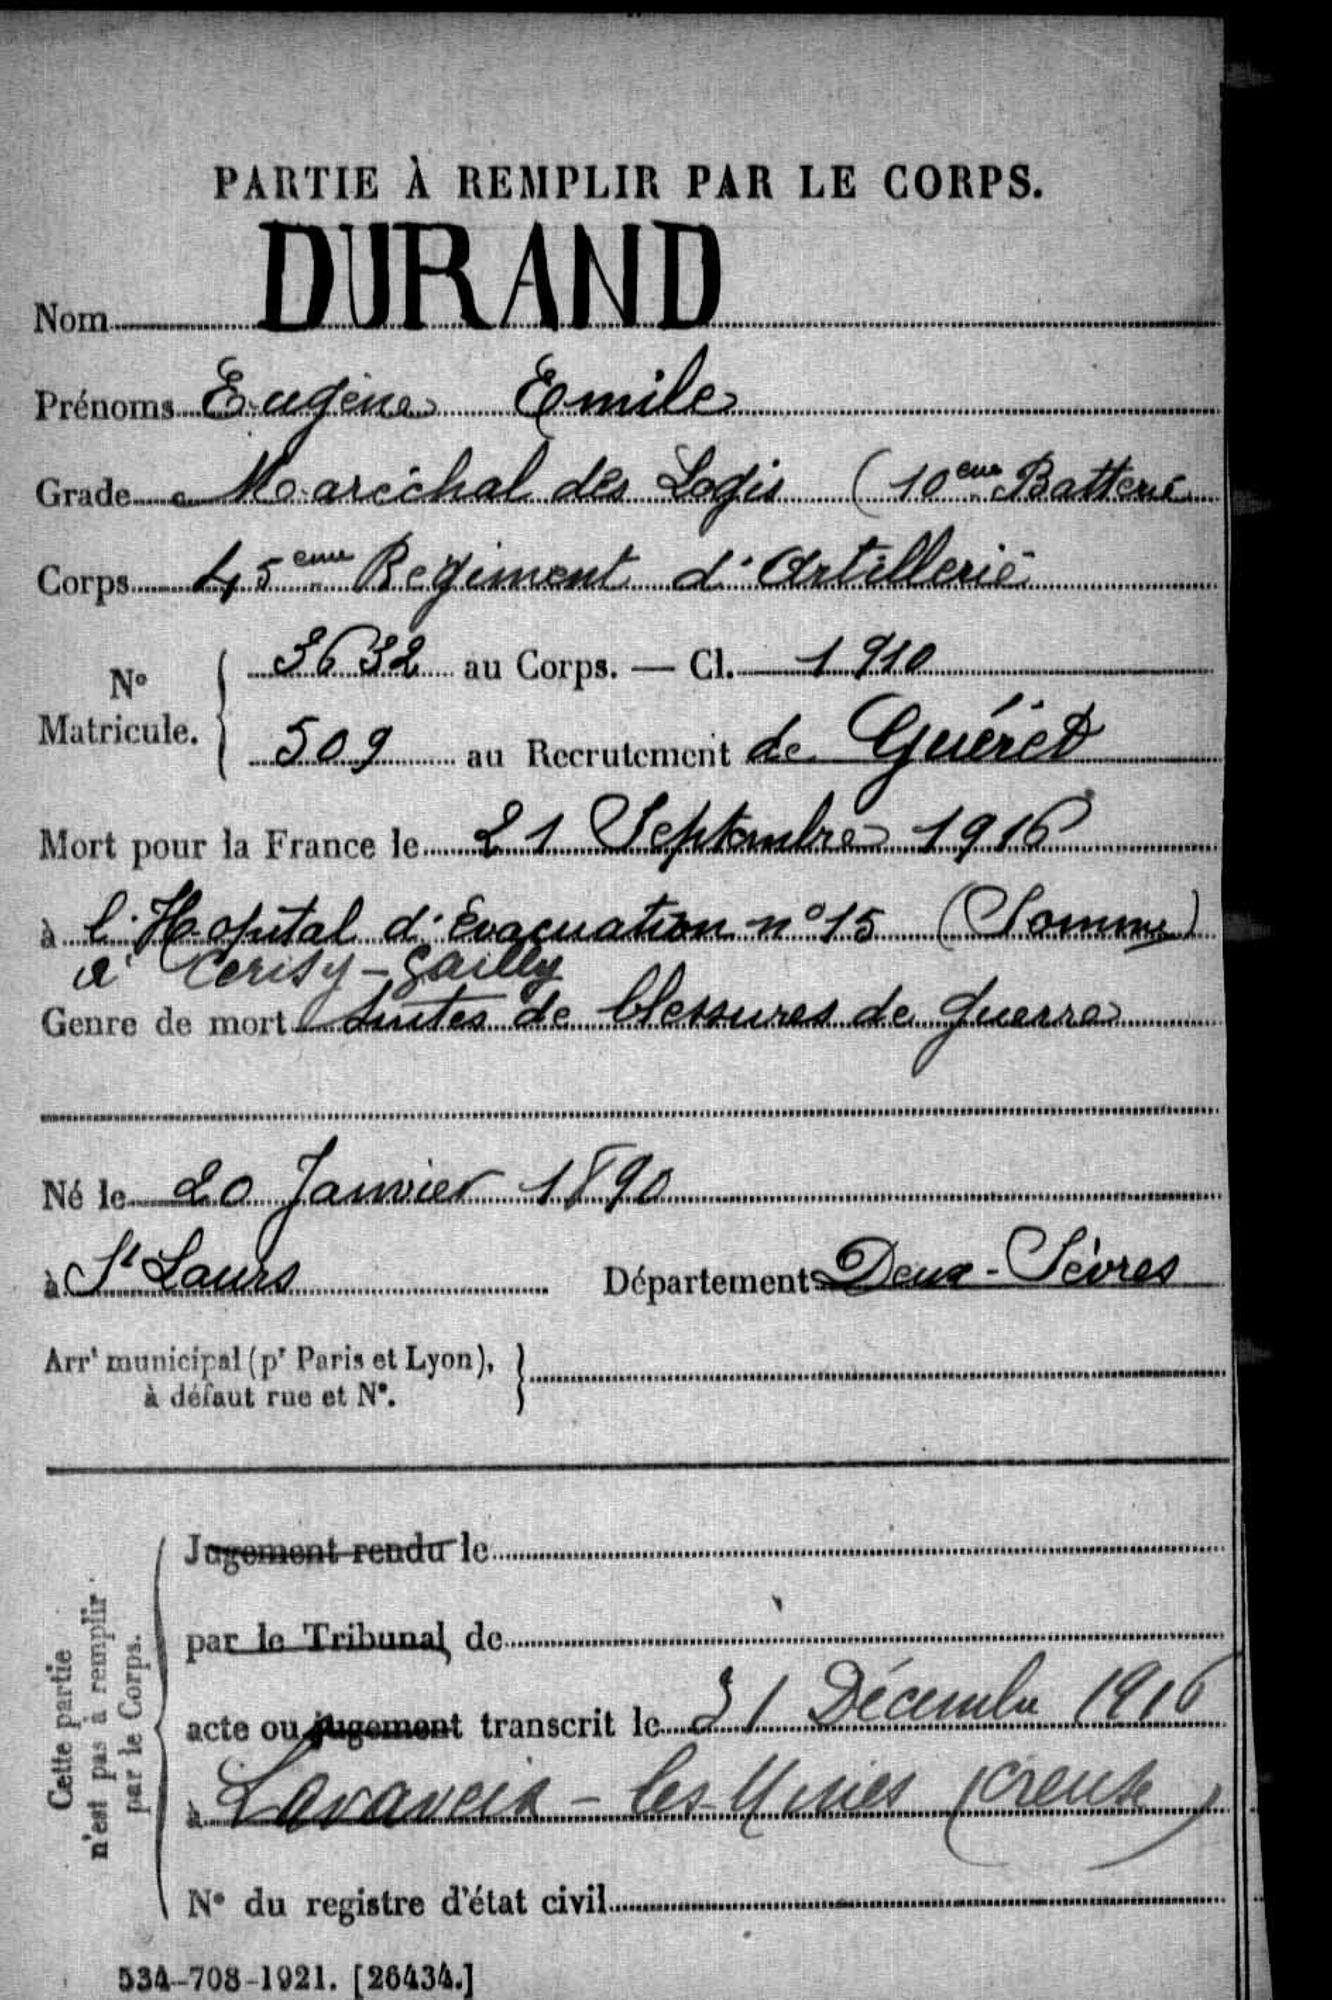 PARTIE À REMPLIR PAR LE CORPS.
Nom DURAND
Prénoms Eugène Emile
Grade Maréchal des Logis (10eme Batterie
Corps 45eme Régiment d'Artillerie
N° Matricule. { 3632 au Corps. — Cl. 1910
509 au Recrutement de Guéret
Mort pour la France le 21 Septembre 1916
à l'Hopital d'Evacuation n° 15 (Somme)
à Cerisy-Gailly
Genre de mort Suites de blessures de guerre
Né le 20 Janvier 1890
à St Laurs Département Deux-Sèvres
Arrt municipal (pr Paris et Lyon), }
à défaut rue et N°.
Cette partie
n'est pas à remplir
par le Corps.
Jugement rendu le
par le Tribunal de
acte ou jugement transcrit le 31 Décembre 1916
à Lavaveix-les-Mines (Creuse)
N° du registre d'état civil
534-708-1921. [26434.]